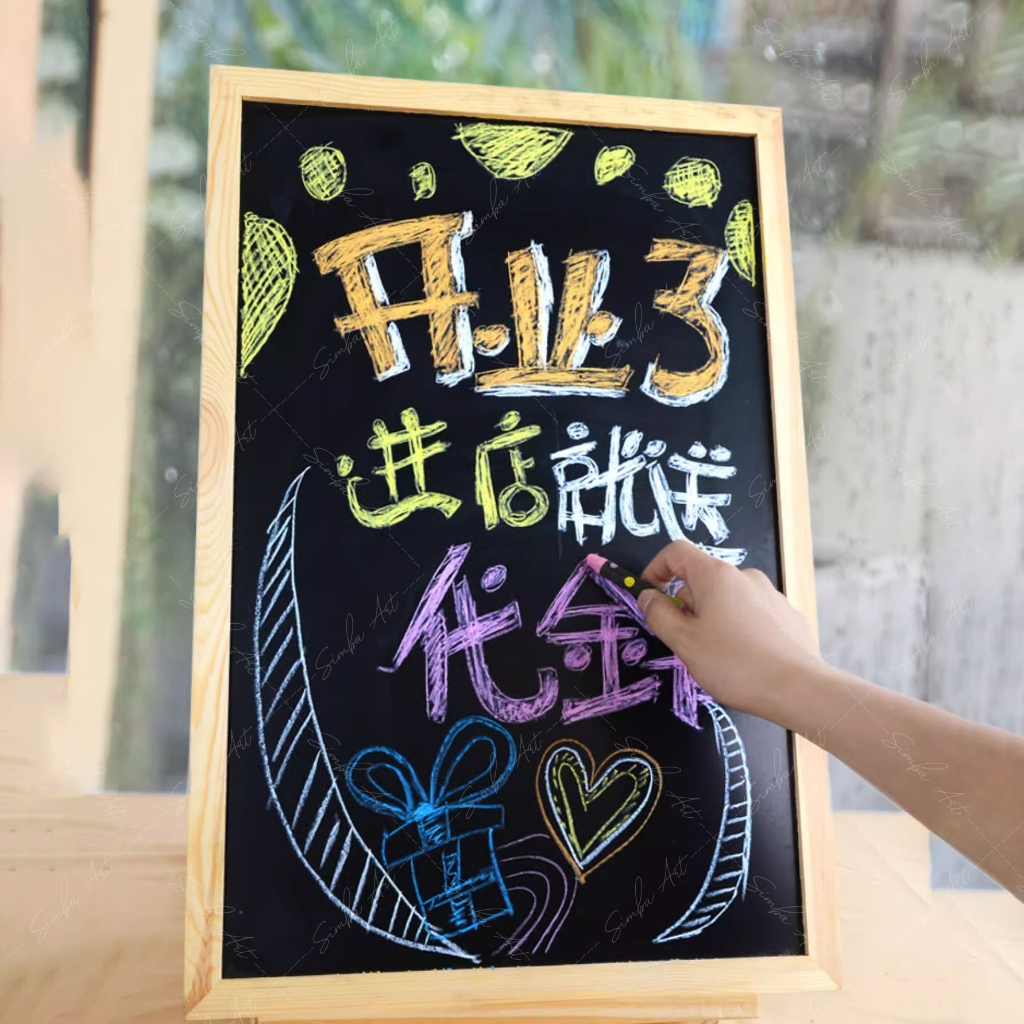 开业了
进店就送
代金
Simba Art